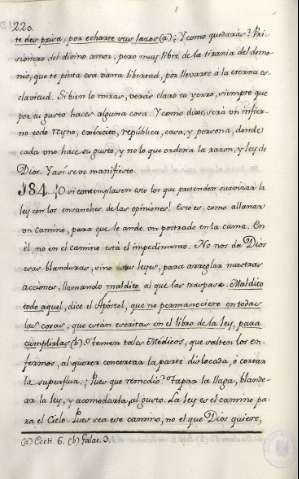 220.
te des prisa, por echarte sus lazos (a); Y como quedarás? Pri-
sionero del divino amor, pero muy libre de la tirania del demo-
nio, que te pinta esa vana libertad, por llevarte à la eterna es-
clavitud. Si bien lo miras, verás claro tu yerro, siempre que
por su gusto haces alguna cosa. Y como dixe, será un infier-
no todo Reyno, exército, república, casa, y persona, donde
cada uno hace su gusto, y no lo que ordena la razon, y ley de
Dios. Y asi es os manifiesto.
184. ¡O si contemplasen esto los que pretenden suavizar la
ley con los ensanches de las opiniones! Esto es, como allanar
un camino, para que le ande un postrado en la cama. En
él no en el camino está el impedimento. No nos dè Dios
esas blanduras, sino sus leyes, para arreglar nuestras
acciones, llamando maldito al que las traspasa. Maldito
todo aquel, dice el Apóstol, que no permaneciere en todas
las cosas, que están escritas en el libro de la ley, para
cumplirlas (b). Temen todos Médicos, que vuelten los en-
fermos, al querer concertar la parte dislocada, ò cortar
la superflua. ¿Pues que remedio? Tapar la llaga, blande-
ar la ley, y acomodarla al gusto. La ley es el camino pa-
ra el Cielo. Pues sea ese camino, no el que Dios quiere,
(a) Eccli. 6. (b) Galat. 3.